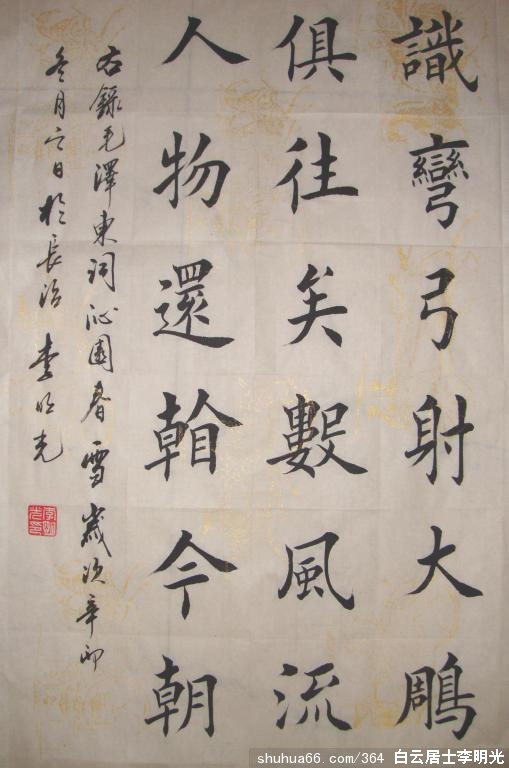 識彎弓射大鵰
俱往矣數風流
人物還看今朝
右錄毛澤東詞沁園春雪歲次辛卯
冬月日於長治 李明光
李明光印
shuhua66.com/364 白云居士李明光